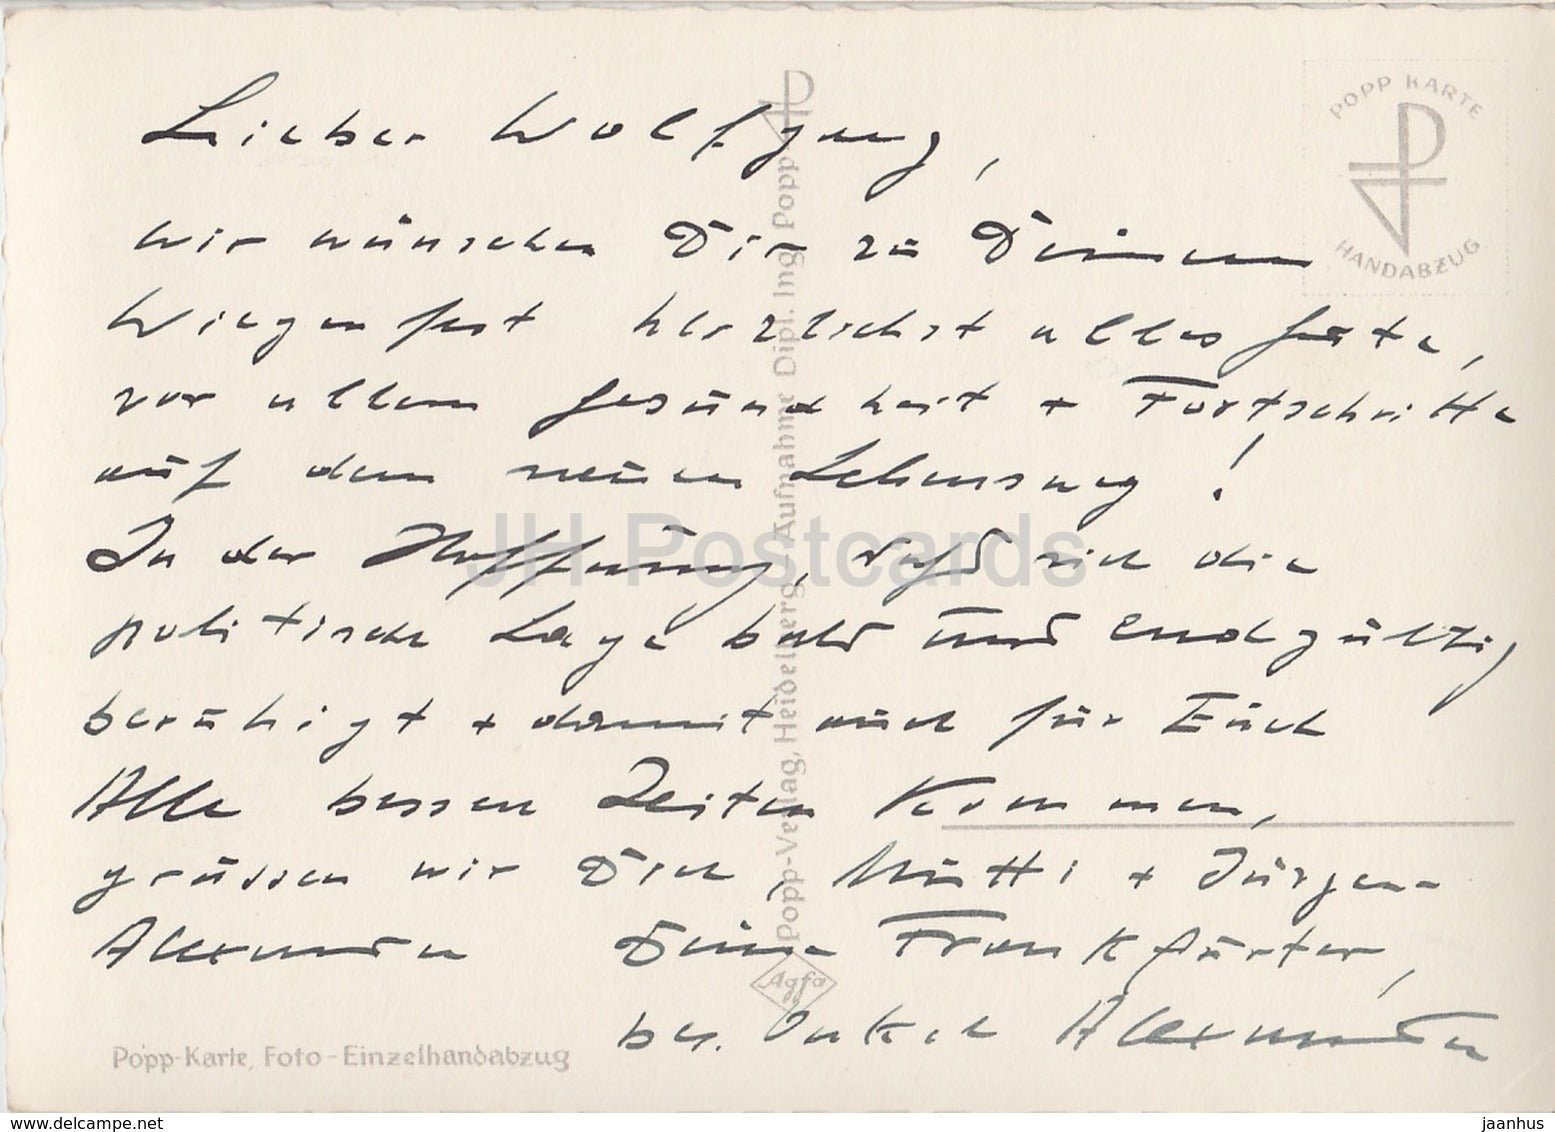 Lieber Wolfgang,
wir wünschen Dir zu Deinem
Wiegenfest herzlichst alles Gute,
vor allem Gesundheit + Fortschritte
auf dem neuen Lebensweg!
In der Hoffnung, daß sich die
politische Lage bald und endgültig
beruhigt + damit auch für Euch
Alle bessere Zeiten kommen,
grüssen wir Dich, Mutti + Jürgen-
Alexander Deine Frankfurter,
bes. Onkel Alexander
POPP KARTE
HANDABZUG
Popp-Verlag, Heidelberg - Aufnahme Dipl. Ing. Popp
Agfa
Popp-Karte, Foto-Einzelhandabzug
JH Postcards
www.delcampe.net
jaanhus